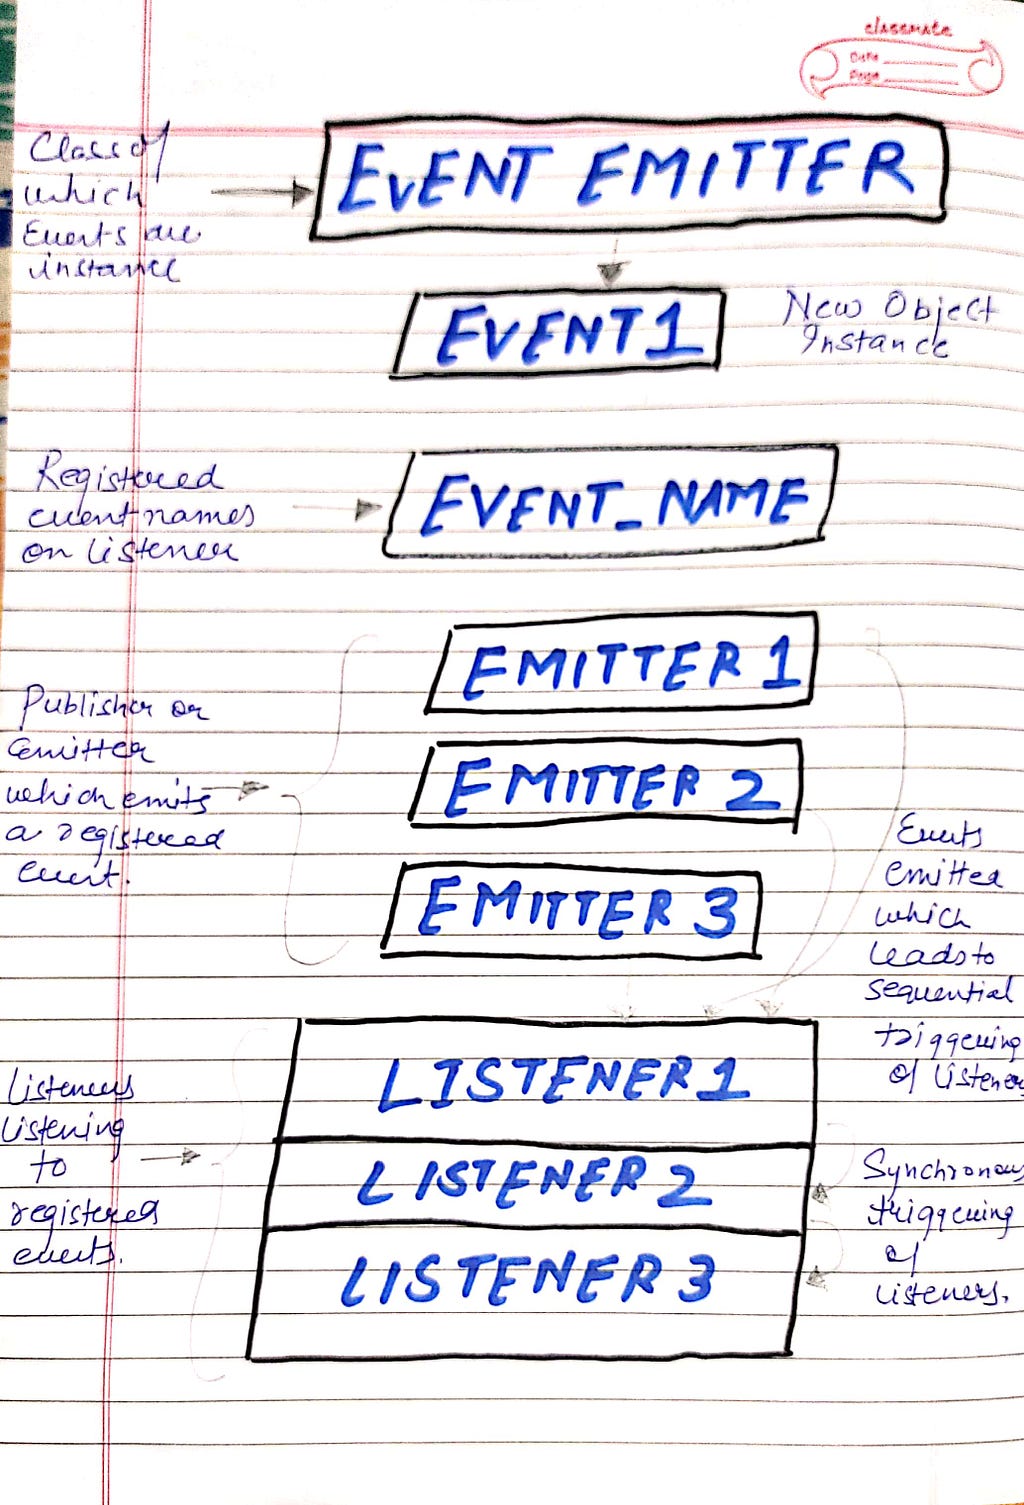 classmate
Date
Page
Class of
which
Events are
instance
EVENT EMITTER
EVENT1
New Object
Instance
Registered
event names
on listener
EVENT_NAME
Publisher or
emitter
which emits
a registered
event.
EMITTER 1
EMITTER 2
EMITTER 3
Events
emitter
which
leads to
sequential
triggering
of listener
Listeners
listening
to
registered
events.
LISTENER1
LISTENER2
LISTENER3
Synchronous
triggering
of
listeners.